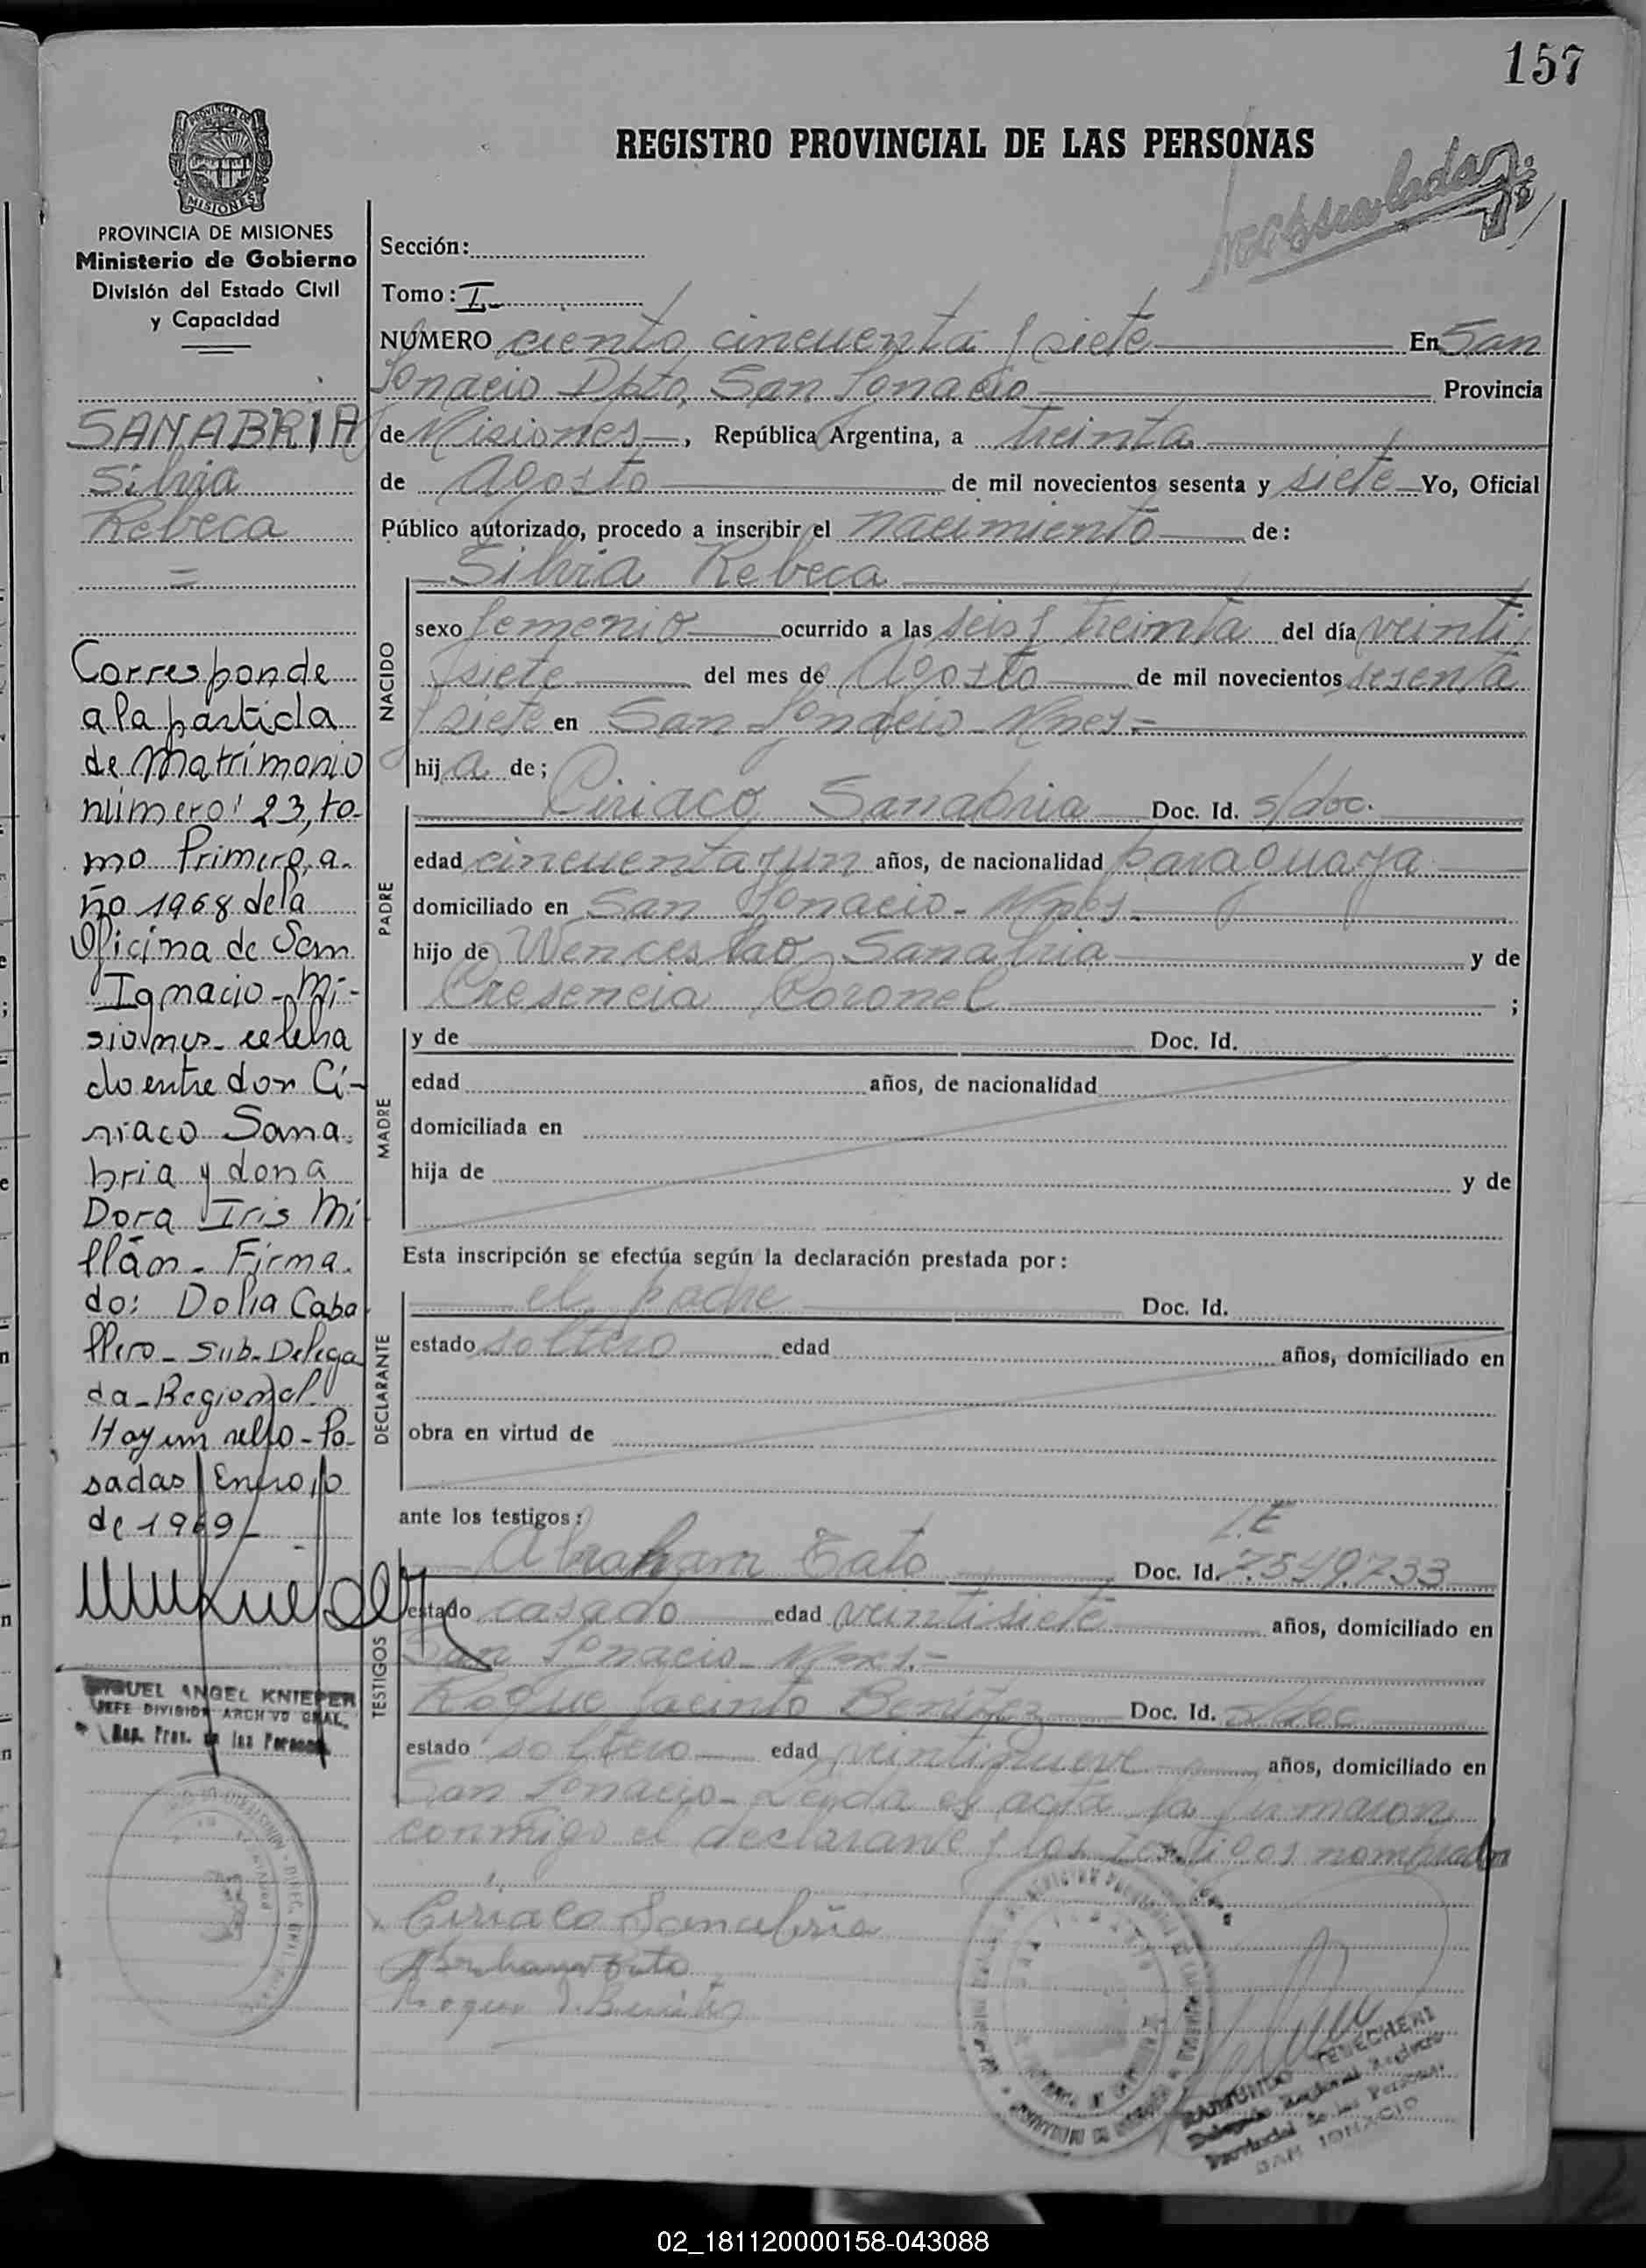 157
REGISTRO PROVINCIAL DE LAS PERSONAS
PROVINCIA DE MISIONES
Ministerio de Gobierno
División del Estado Civil
y Capacidad
SANABRIA
Silvia
Rebeca
=
Corresponde
a la partida
de Matrimonio
número: 23, to-
mo Primero, a-
ño 1968 de la
Oficina de San
Ignacio-Mi-
siones- celebra
do entre don Ci-
riaco Sana-
bria y dona
Dora Iris Mi
llán- Firma-
do: Dolia Caba
llero- Sub-Delega
da-Regional.
Hay un sello-Po-
sadas, Enero 10
de 1969-
MIGUEL ANGEL KNIEPER
JEFE DIVISION ARCHIVO GRAL.
Reg. Prov. de las Personas
Sección:
Tomo: I-
NUMERO ciento cincuenta y siete En San
Ignacio Dpto. San Ignacio Provincia
de Misiones, República Argentina, a treinta
de Agosto de mil novecientos sesenta y siete Yo, Oficial
Público autorizado, procedo a inscribir el nacimiento de:
Silvia Rebeca
NACIDO
sexo femenio ocurrido a las seis y treinta del día veinti
siete del mes de Agosto de mil novecientos sesenta
y siete en San Ignacio- Mnes-
hija de;
PADRE
Ciriaco Sanabria Doc. Id. s/doc.
edad cincuenta y un años, de nacionalidad paraguaya
domiciliado en San Ignacio- Mnes-
hijo de Wenceslao Sanabria y de
Cresencia Coronel ;
MADRE
y de Doc. Id.
edad años, de nacionalidad
domiciliada en
hija de y de
Esta inscripción se efectúa según la declaración prestada por:
DECLARANTE
el padre Doc. Id.
estado soltero edad años, domiciliado en
obra en virtud de
ante los testigos:
L.E
TESTIGOS
Abraham Tato Doc. Id. 7.549.733
estado casado edad veintisiete años, domiciliado en
San Ignacio- Mnes.-
Roque Jacinto Benítez Doc. Id. s/doc
estado soltero edad veintinueve años, domiciliado en
San Ignacio- Leyda es acta la firmaron
conmigo el declarante y los testigos nombrados
Ciriaco Sanabria
Abraham Tato
Roque J. Benitez
RAIMUNDO TENECHERI
Delegado Regional Registro
Provincial de las Personas
SAN IGNACIO
02_181120000158-043088